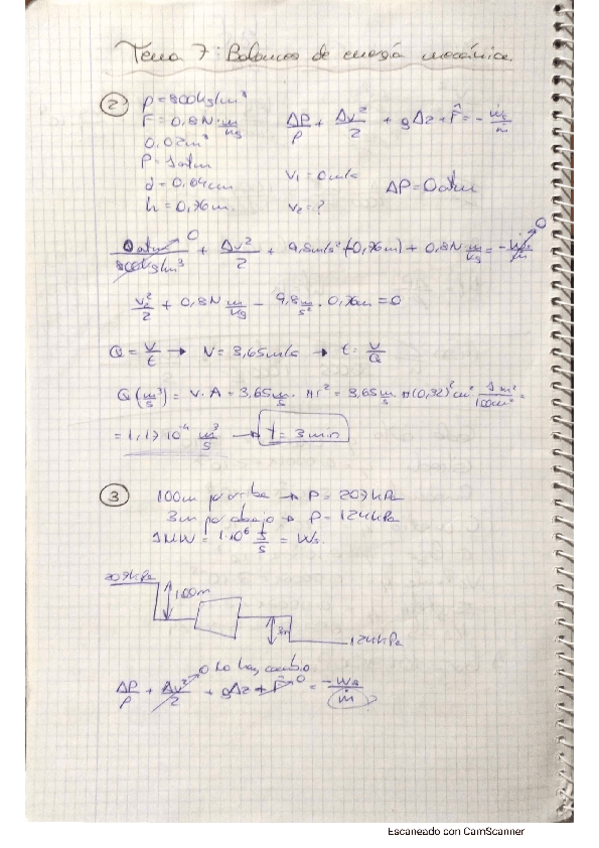 Tema 7: Balances de energía mecánica.
2 ρ = 800 kg/m³
F = 0,8 N·m/kg ΔP/ρ + Δv²/2 + gΔz + F̂ = - Ẇs/ṁ
0,02 m³
P = 1 atm v₁ = 0 m/s ΔP = 0 atm
d = 0,64 cm
h = 0,76 m. v₂ = ?
0 atm/800 kg/m³ 0 + Δv²/2 + 9,8 m/s² (-0,76 m) + 0,8 N m/kg = - Ẇs/ṁ 0
v₂²/2 + 0,8 N m/kg - 9,8 m/s² · 0,76 m = 0
Q = V/t → V = 3,65 m/s → t = V/Q
Q (m³/s) = V · A = 3,65 m/s · πr² = 3,65 m/s · π(0,32)² cm² · 1 m²/100 cm² =
= 1,17·10⁻⁴ m³/s → t = 3 min
3 100m por arriba → P = 207 kPa
3m por abajo → P = 124 kPa
1 MW = 1·10⁶ J/s = Ws
207 kPa
100m
3m
124 kPa
ΔP/ρ + Δv²/2 0 no hay cambio + gΔz + F̂ 0 = -Ws/ṁ
Escaneado con CamScanner